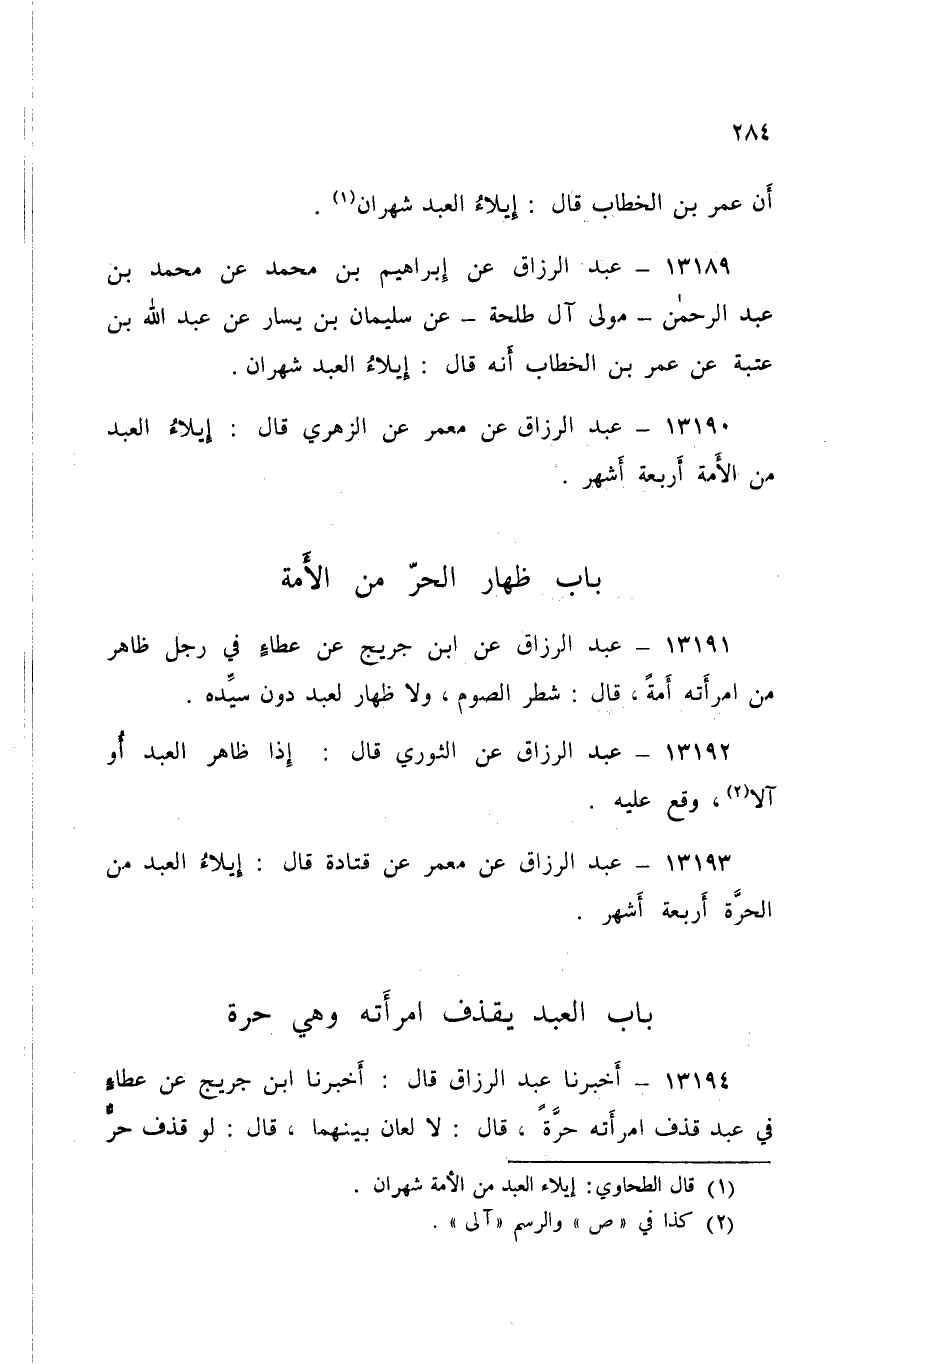 ٢٨٤
أَن عمر بن الخطاب قال : إيلاءُ العبد شهران(١) .
١٣١٨٩ – عبد الرزاق عن إبراهيم بن محمد عن محمد بن
عبد الرحمٰن – مولى آل طلحة – عن سليمان بن يسار عن عبد الله بن
عتبة عن عمر بن الخطاب أَنه قال : إيلاءُ العبد شهران .
١٣١٩٠ – عبد الرزاق عن معمر عن الزهري قال : إيلاءُ العبد
من الأَمة أَربعة أَشهر .
باب ظهار الحرّ من الأَمة
١٣١٩١ – عبد الرزاق عن ابن جريج عن عطاءٍ في رجل ظاهر
من امرأَته أَمةً ، قال : شطر الصوم ، ولا ظهار لعبد دون سيِّده .
١٣١٩٢ – عبد الرزاق عن الثوري قال : إذا ظاهر العبد أَو
آلا(٢) ، وقع عليه .
١٣١٩٣ – عبد الرزاق عن معمر عن قتادة قال : إيلاءُ العبد من
الحرَّة أَربعة أَشهر .
باب العبد يقذف امرأَته وهي حرة
١٣١٩٤ – أَخبرنا عبد الرزاق قال : أَخبرنا ابن جريج عن عطاءٍ
في عبد قذف امرأَته حرَّةً ، قال : لا لعان بينهما ، قال : لو قذف حرٌّ
(١) قال الطحاوي : إيلاء العبد من الأمة شهران .
(٢) كذا في « ص » والرسم « آلى » .